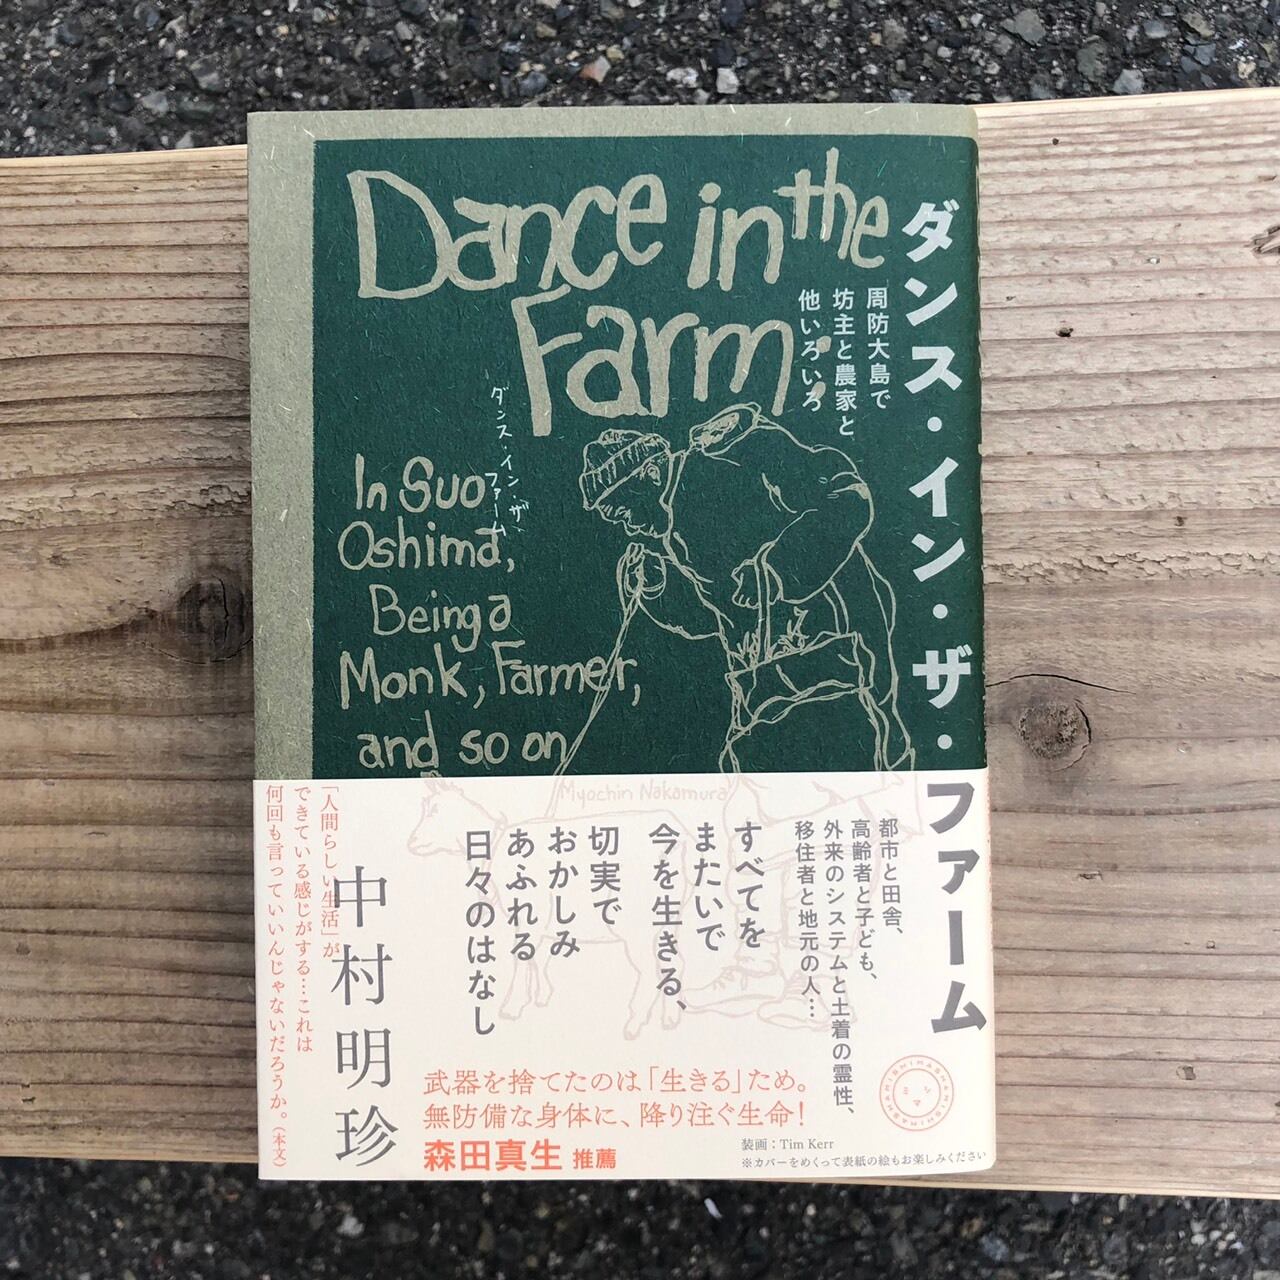 Dance in the
Farm
ダンス・イン・ザ・ファーム
周防大島で
坊主と農家と
他いろいろ
ダンス・イン・ザ・
ファーム
In Suo
Oshima,
Being a
Monk, Farmer,
and so on
Myochin Nakamura
都市と田舎、
高齢者と子ども、
外来のシステムと土着の霊性、
移住者と地元の人…
すべてを
またいで
今を生きる、
切実で
おかしみ
あふれる
日々のはなし
中村明珍
「人間らしい生活」が
できている感じがする…これは
何回も言っていいんじゃないだろうか。(本文)
武器を捨てたのは「生きる」ため。
無防備な身体に、降り注ぐ生命!
森田真生 推薦
装画:Tim Kerr
※カバーをめくって表紙の絵もお楽しみください